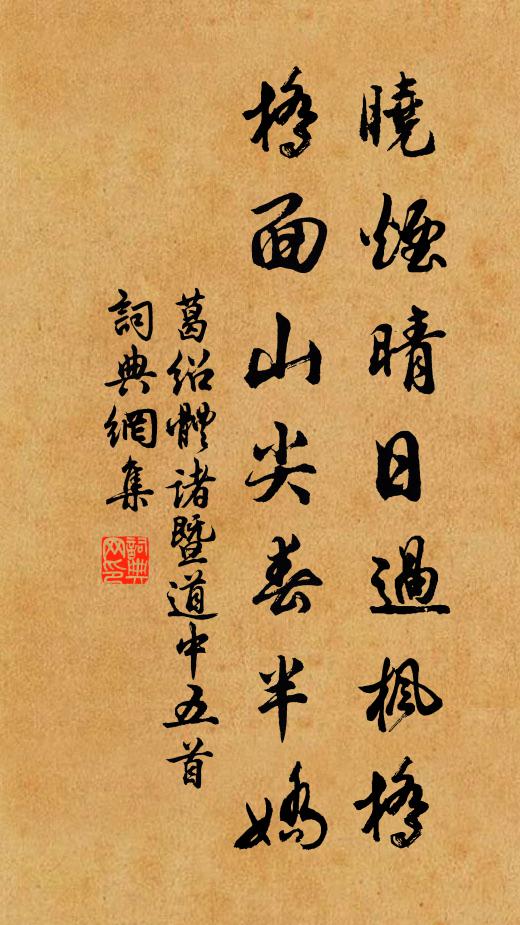 曉煙晴日過楓橋
橋面山尖春半嬌
葛紹體諸暨道中五首
詞典網集
詞典網印